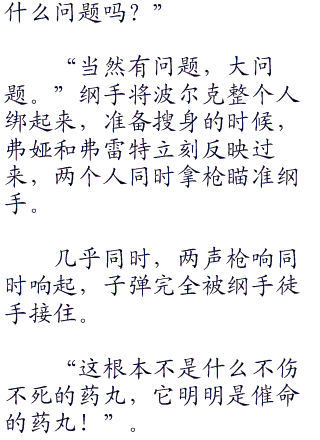 什么问题吗？”
“当然有问题，大问
题。”纲手将波尔克整个人
绑起来，准备搜身的时候，
弗娅和弗雷特立刻反映过
来，两个人同时拿枪瞄准纲
手。
几乎同时，两声枪响同
时响起，子弹完全被纲手徒
手接住。
“这根本不是什么不伤
不死的药丸，它明明是催命
的药丸！”。